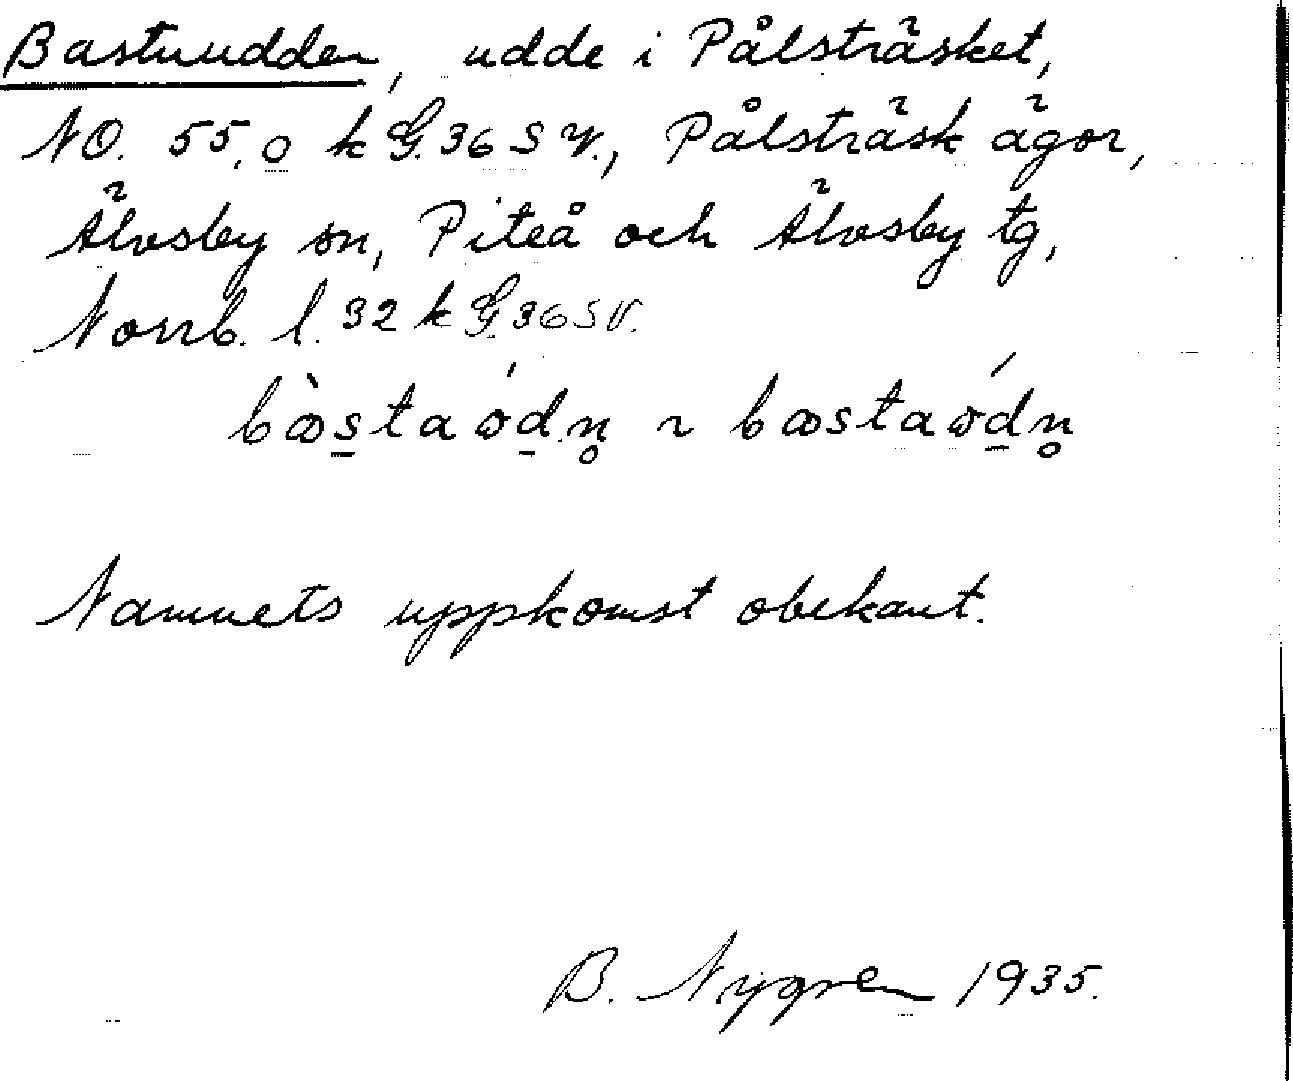 Bastuudden, udde i Pålsträsket,
NO. 55,0 k G. 36 S V., Pålsträsk ägor,
Älvsby sn, Piteå och Älvsby tg,
Norrb. l. 32 k G. 36 SV.
bàstaódn̥ ~ bastaódn̥
Namnets uppkomst obekant.
B. Nygren 1935.